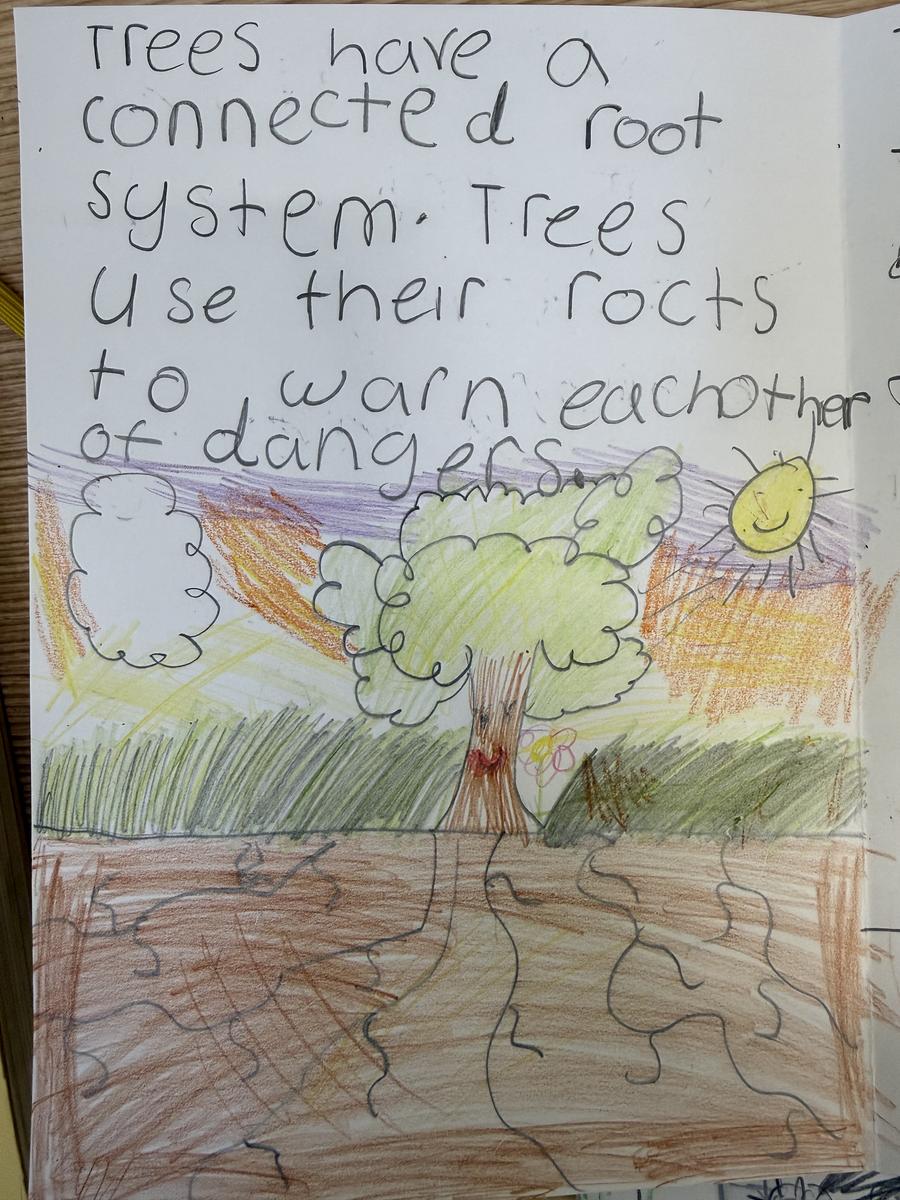 Trees have a
connected root
system. Trees
use their rocts
to warn eachother
of dangers.